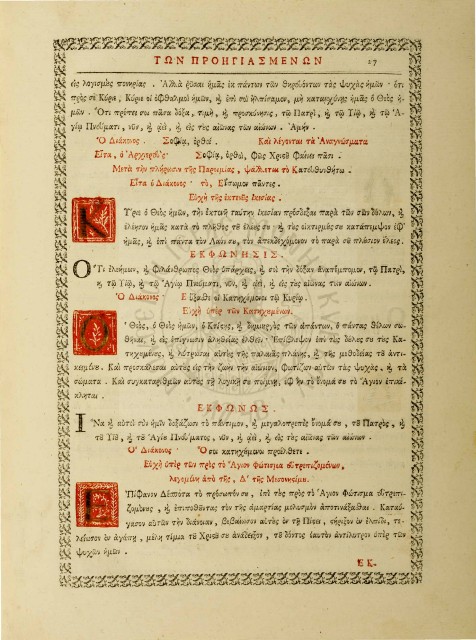 ΤΩΝ ΠΡΟΗΓΙΑΣΜΕΝΩΝ 27
εἰς λογισμὲς πονηρίας . Ἀλλὰ ῥῦσαι ἡμᾶς ἐκ πάντων τῶν θηρευόντων τὰς ψυχὰς ἡμῶν · ὅτι
πρὸς σὲ Κύριε , Κύριε οἱ ὀφθαλμοὶ ἡμῶν , ἐπὶ σοὶ ἠλπίσαμεν , μὴ καταισχύνῃς ἡμᾶς ὁ Θεὸς ἡ-
μῶν . Ὅτι πρέπει σοι πᾶσα δόξα , τιμὴ , καὶ προσκύνησις , τῷ Πατρὶ , καὶ τῷ Υἱῷ , καὶ τῷ Ἁ-
γίῳ Πνεύματι , νῦν , καὶ ἀεὶ , καὶ εἰς τὲς αἰῶνας τῶν αἰώνων . Ἀμήν .
Ὁ Διάκονος . Σοφία , ὀρθοί . Καὶ λέγονται τὰ Ἀναγνώσματα
Εἶτα , ὁ Ἀρχιερεύς · Σοφία , ὀρθοί , Φῶς Χριστοῦ Φαίνει πᾶσι .
Μετὰ τὴν πλήρωσιν τῆς Παροιμίας , ψάλλεται τὸ Κατευθυνθήτω .
Εἶτα ὁ Διάκονος · τὸ , Εἴπωμεν πάντες .
Εὐχὴ τῆς ἐκτενοῦς ἱκεσίας .
Κύριε ὁ Θεὸς ἡμῶν , τὴν ἐκτενῆ ταύτην ἱκεσίαν πρόσδεξαι παρὰ τῶν σῶν δούλων , καὶ
ἐλέησον ἡμᾶς κατὰ τὸ πλῆθος τῦ ἐλέους σου , καὶ τὲς οἰκτιρμές σου κατάπεμψον ἐφ'
ἡμᾶς , καὶ ἐπὶ πάντα τὸν Λαόν σου , τὸν ἀπεκδεχόμενον τὸ παρὰ σοῦ πλούσιον ἔλεος .
ΕΚΦΩΝΗΣΙΣ .
Ὅτι ἐλεήμων , καὶ φιλάνθρωπος Θεὸς ὑπάρχεις , καὶ σοὶ τὴν δόξαν ἀναπέμπομεν , τῷ Πατρὶ ,
καὶ τῷ Υἱῷ , καὶ τῷ Ἁγίῳ Πνεύματι , νῦν , καὶ ἀεὶ , καὶ εἰς τὲς αἰῶνας τῶν αἰώνων .
Ὁ Διάκονος · Εὔξασθε οἱ Κατηχούμενοι τῷ Κυρίῳ .
Εὐχὴ ὑπὲρ τῶν Κατηχουμένων .
Ὁ Θεὸς , ὁ Θεὸς ἡμῶν , ὁ Κτίστης , καὶ δημιουργὸς τῶν ἁπάντων , ὁ πάντας θέλων σω-
θῆναι , καὶ εἰς ἐπίγνωσιν ἀληθείας ἐλθεῖν · Ἐπίβλεψον ἐπὶ τὲς δούλους σου τὲς Κα-
τηχουμένους , καὶ λύτρωσαι αὐτὲς τῆς παλαιᾶς πλάνης , καὶ τῆς μεθοδείας τῦ ἀντι-
κειμένου . Καὶ προσκάλεσαι αὐτὲς εἰς τὴν ζωὴν τὴν αἰώνιον , φωτίζων αὐτῶν τὰς ψυχὰς , καὶ τὰ
σώματα . Καὶ συγκαταριθμῶν αὐτὲς τῇ λογικῇ σου ποίμνῃ , ἐφ' ἣν τὸ ὄνομά σου τὸ Ἅγιον ἐπικέ-
κληται .
ΕΚΦΩΝΩΣ .
Ἵνα καὶ αὐτοὶ σὺν ἡμῖν δοξάζωσι τὸ πάντιμον , καὶ μεγαλοπρεπὲς ὄνομά σου , τῦ Πατρὸς , καὶ
τῦ Υἱῦ , καὶ τῦ Ἁγίου Πνεύματος , νῦν , καὶ ἀεὶ , καὶ εἰς τὲς αἰῶνας τῶν αἰώνων .
Ὁ Διάκονος · Ὅσοι κατηχούμενοι προέλθετε .
Εὐχὴ ὑπὲρ τῶν πρὸς τὸ Ἅγιον Φώτισμα εὐτρεπιζομένων ,
λεγομένη ἀπὸ τῆς , Δ' τῆς Μεσονηστίμου .
Ἐπίφανον Δέσποτα τὸ πρόσωπόν σου , ἐπὶ τὲς πρὸς τὸ Ἅγιον Φώτισμα εὐτρεπι-
ζομένους , καὶ ἐπιποθοῦντας τὸν τῆς ἁμαρτίας μολυσμὸν ἀποτινάξασθαι . Καταύ-
γασον αὐτῶν τὴν διάνοιαν , βεβαίωσον αὐτὲς ἐν τῇ Πίστει , στήριξον ἐν ἐλπίδι , τε-
λείωσον ἐν ἀγάπῃ , μέλη τίμια τῦ Χριστοῦ σου ἀνάδειξον , τῦ δόντος ἑαυτὸν ἀντίλυτρον ὑπὲρ τῶν
ψυχῶν ἡμῶν .
ΕΚ.